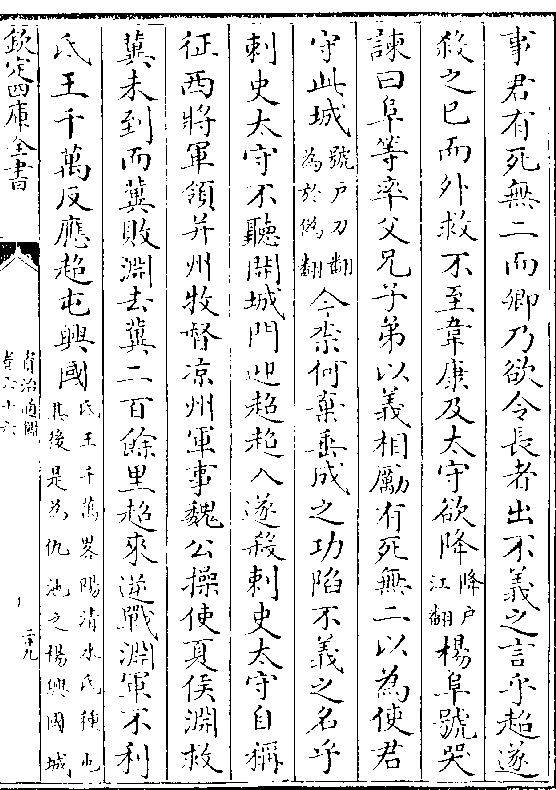 事君有死無二而卿乃欲令長者出不義之言乎超遂
殺之已而外救不至韋康及太守欲降降戶江翻楊阜號哭
諫曰阜等率父兄子弟以義相勵有死無二以為使君
守此城號戶刀翻為於偽翻今柰何棄垂成之功陷不義之名乎
刺史太守不聽開城門迎超超入遂殺刺史太守自稱
征西將軍領并州牧督凉州軍事魏公操使夏侯淵救
冀未到而冀敗淵去冀二百餘里超來逆戰淵軍不利
氐王千萬反應超屯興國氐王千萬畧陽清水氐種也其後是為仇池之楊興國城
欽定四庫全書
資治通鑑
卷六十六
二十九